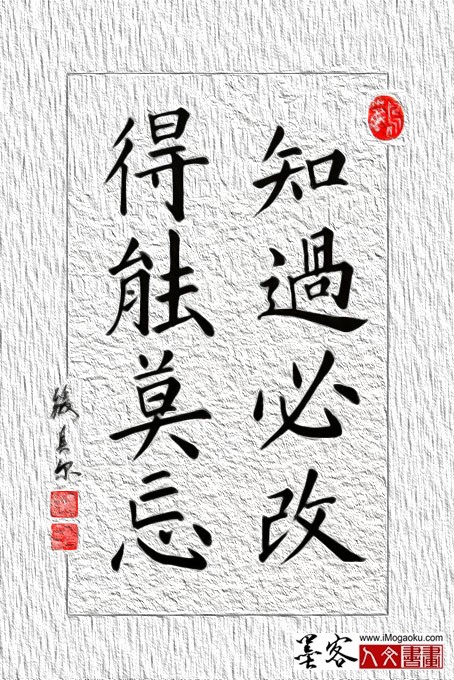 知過必改
得能莫忘
墨客
www.iMogaoku.com
人文書畫